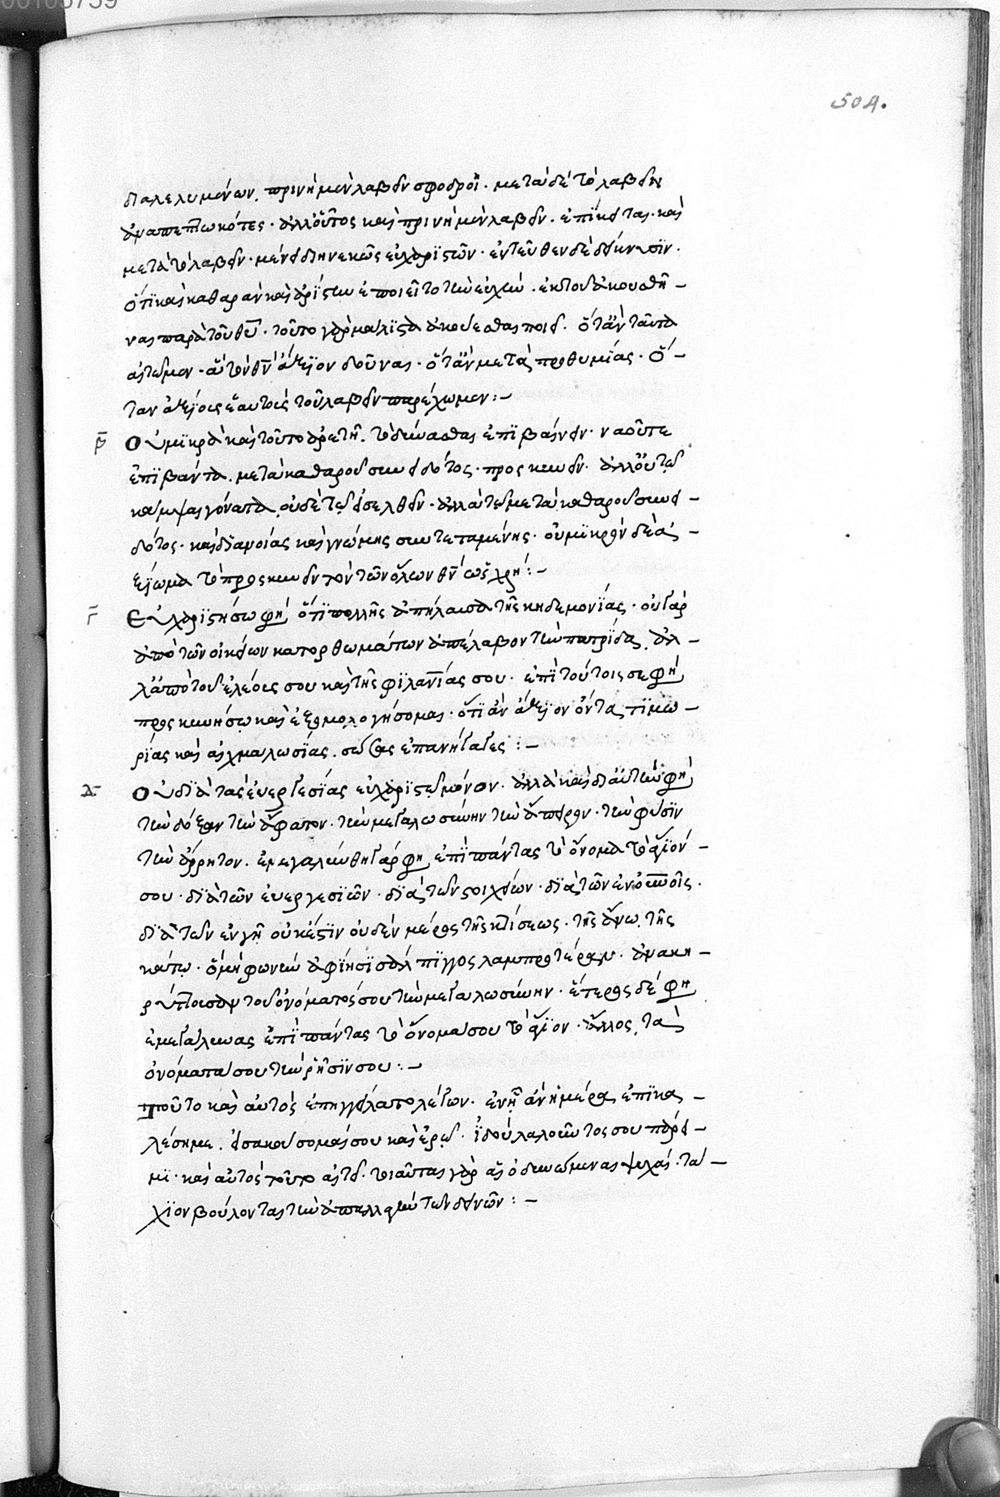 504.
διαλελυμένων. πρινὴ μὲν λαβεῖν σφοδροὶ· μετὰ δὲ τὸ λαβεῖν
ἀναπεπτωκότες· ἀλλ' οὗτος καὶ πρινὴ μὲν λαβεῖν· ἐπίκειται· καὶ
μετὰ τὸ λαβεῖν· μένει διηνεκῶς εὐχαριστῶν· ἐντεῦθεν δὲ δείκνυσϊν·
ὅτι καὶ καθαρὰν καὶ ἀρίστην ἐποιεῖτο τὴν εὐχήν· ἐκ τοῦ ἀκουσθῆ-
ναι παρὰ τοῦ θυ· τοῦτο γὰρ μάλιστα ἀκούεσθαι ποιεῖ· ὅταν ταῦτα
αἰτῶμεν· ἃ τὸν θν ἄξιον δοῦναι· ὅταν μετὰ προθυμίας· ὅ-
ταν ἀξίους ἑαυτοὺς τοῦ λαβεῖν παρέχωμεν:-
β Οὐ μικρὰ καὶ τοῦτο ἀρετὴ. τὸ δύνασθαι ἐπιβαίνειν· ναοῦτε
ἐπιβάντα. μετὰ καθαροῦ συνειδότος· προσκυνεῖν· ἀλλ' οὐ τῶ
κάμψαι γόνατα, οὐδὲ τῶ εἰσελθεῖν· ἀλλὰ τῶ μετὰ καθαροῦ συνει-
δότος· καὶ διανοίας καὶ γνώμης συντεταμένης· οὐ μικρὸν δὲ ἀ-
ξίωμα τὸ προσκυνεῖν τὸν τῶν ὅλων θν ὡς χρή:-
γ Εὐχαριστήσω φη ὅτι πολλῆς ἀπήλαυσα τῆς κηδεμονίας· οὐ γὰρ
ἀπὸ τῶν οἰκείων κατορθωμάτων ἀπέλαβον τὴν πατρίδα, ἀλ-
λ' ἀπὸ τοῦ ἐλέους σου καὶ τῆς φιλανίας σου· ἐπὶ τούτοις σε φη
προσκυνήσω καὶ ἐξομολογήσομαι· ὅτι ἀνάξιον ὄντα τιμω-
ρίας καὶ αἰχμαλωσίας. σώσας ἐπανήγαγες:-
δ Οὐ διὰ τὰς εὐεργεσίας εὐχαριστῶ μόνον· ἀλλὰ καὶ διὰ τὴν φη
τὴν δόξαν τὴν ἄφατον· τὴν μεγαλωσύνην τὴν ἄπειρον· τὴν φύσιν
τὴν ἄρρητον. ἐμεγαλύνθη γάρ φη ἐπὶ πάντας τὸ ὄνομα τὸ ἅγιόν-
σου· διὰ τῶν εὐεργεσιῶν· διὰ τῶν στοιχείων· διὰ τῶν ἐν ουνοῖς·
διὰ τῶν ἐν γῆ οὐκ ἔστιν οὐδὲν μέρος τῆς κτίσεως· τῆς ἄνω. τῆς
κάτω· ὃ μὴ φωνὴν ἀφίησι σάλπιγγος λαμπροτέραν· ἀνακη-
ρύττουσαν τοῦ ὀνόματός σου τὴν μεγαλωσύνην· ἕτερος δέ φη
ἐμεγάλυνας ἐπὶ πάντας τὸ ὄνομά σου τὸ ἅγιον· ἄλλος, τὰ
ὀνόματά σου τὴν ῥῆσίν σου:-
Τοῦτο καὶ αὐτὸς ἐπηγγείλατο λέγων· ἐν ἧ ἂν ἡμέρα ἐπικα-
λέσημε. εἰσακούσομαί σου καὶ ἐρῶ· ἰδοὺ λαλοῦντός σου πάρει-
μι· καὶ αὐτὸς τοῦτο αἰτεῖ· τοιαῦται γὰρ αἱ ὀδυνώμεναι ψυχαί· τα-
χίον βούλονται τὴν ἀπαλλαγὴν τῶν δεινῶν:-